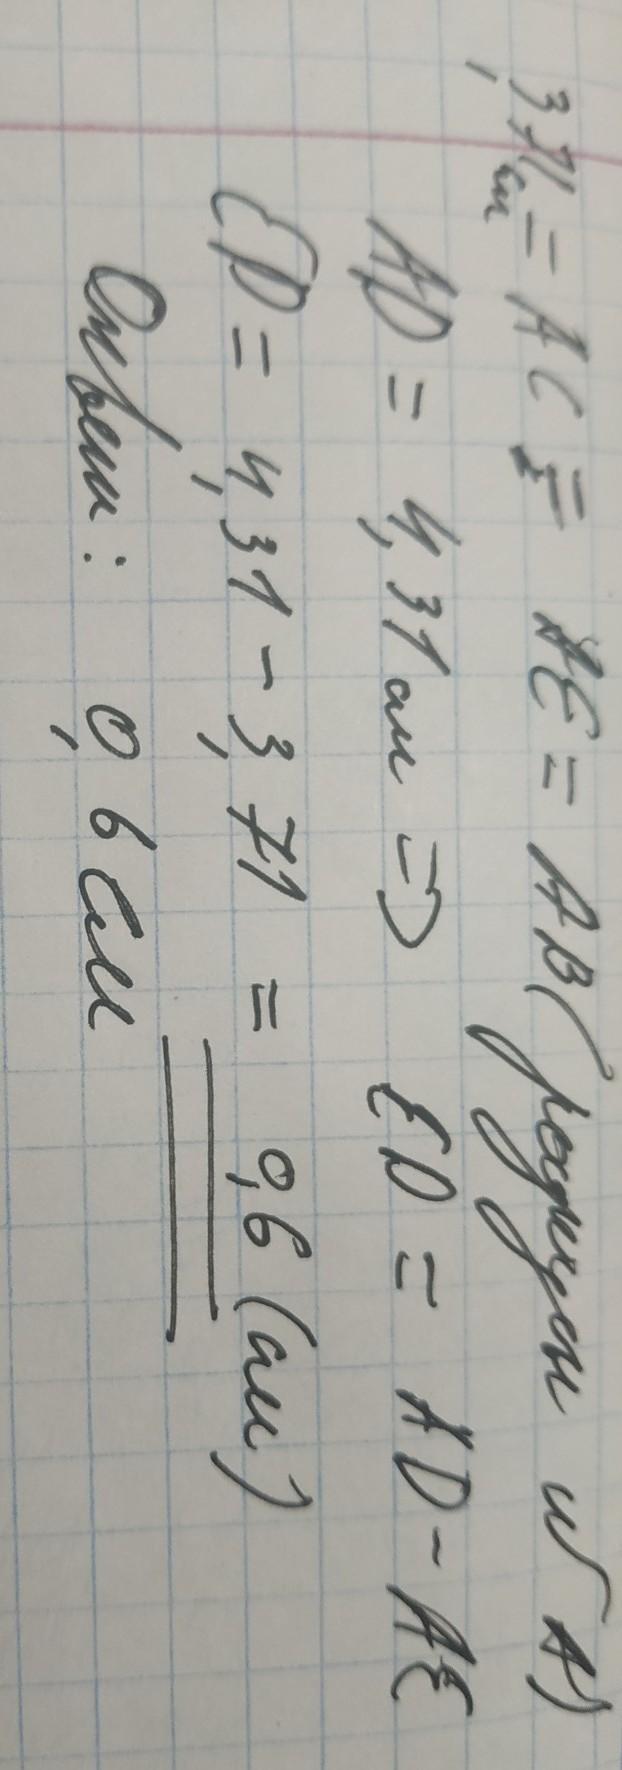 3,71 см = AC = AE = AB (радиусы W A)
AD = 4,31 см => ED = AD - AE
ED = 4,31 - 3,71 = 0,6 (см)
Ответ: 0,6 см